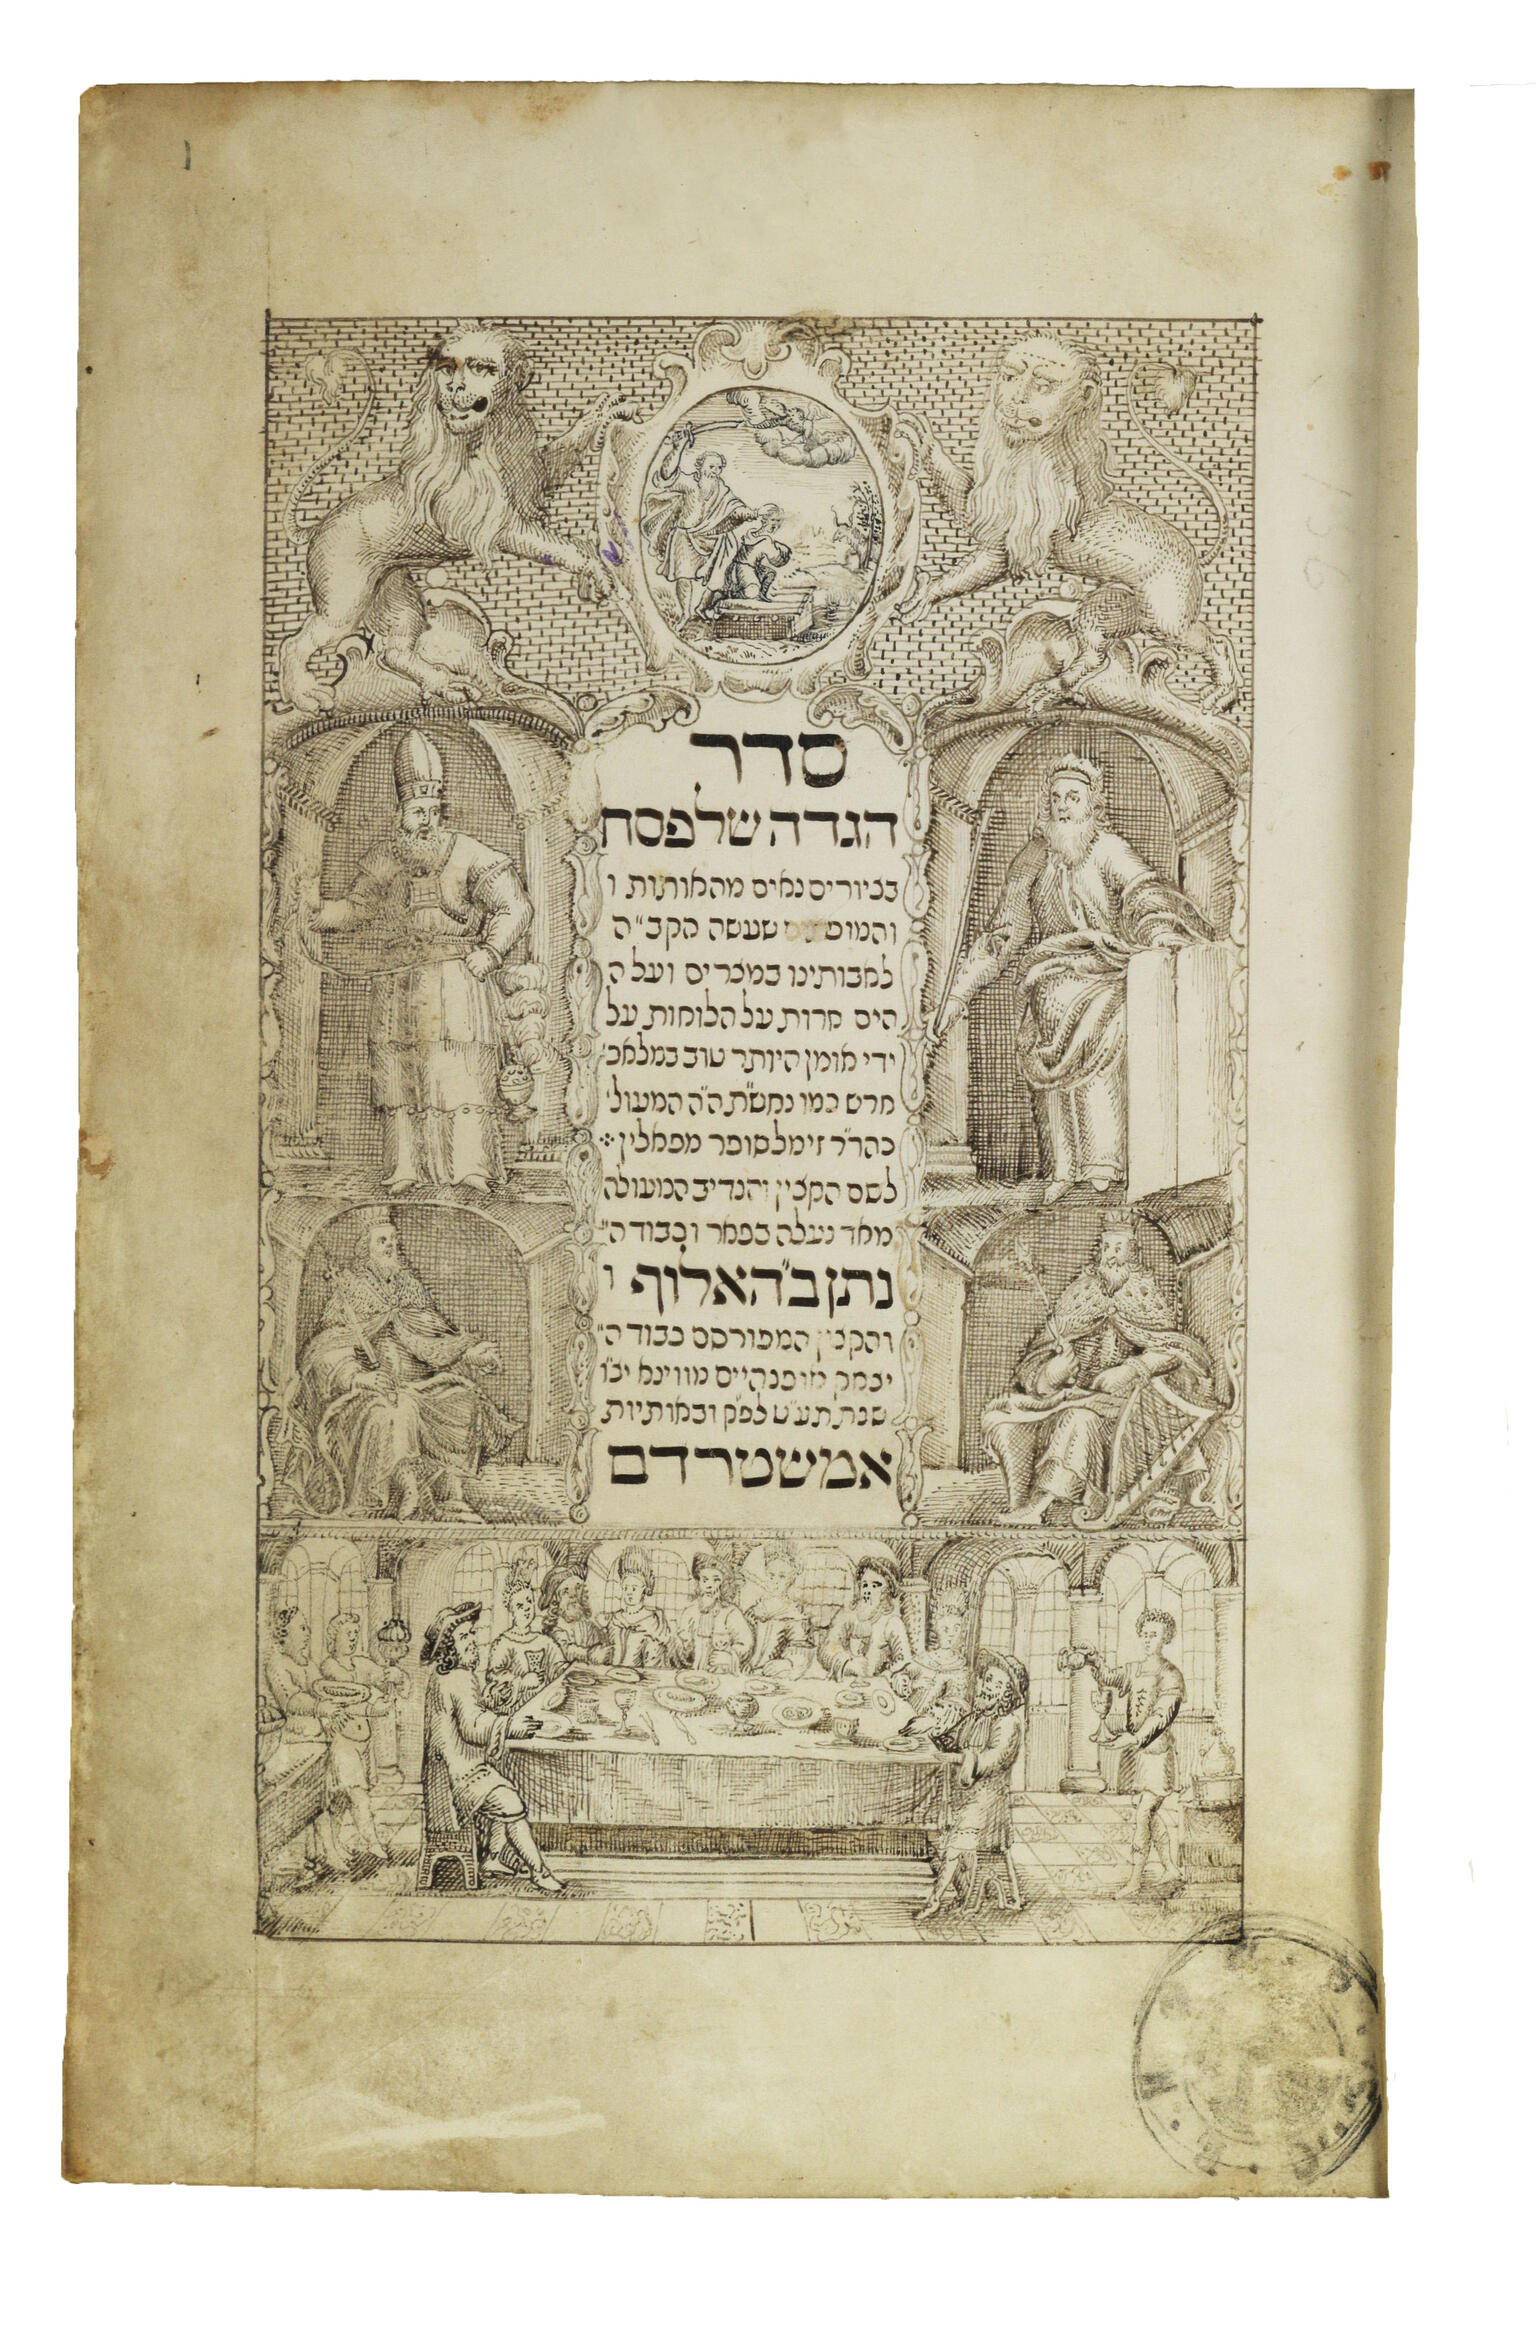 סדר
הגדה של פסח
בציורים נאים מהאותות ו
והמופתים שעשה הקב״ה
לאבותינו במצרים ועל ה
הים חרות על הלוחות על
ידי אומן היותר טוב במלאכ׳
חרש כמו נחש״ת ה״ה המעול׳
כהר״ר זימל סופר מפאלין
לשם הקצין והנדיב המעולה
מאד נעלה בפאר וכבוד ה״
נתן ב״האלוף ו
והקצין המפורסם כבוד ה״
יצחק אופנהיים מווינא יצ״ו
שנת תע״ט לפ״ק ובאותיות
אמשטרדם